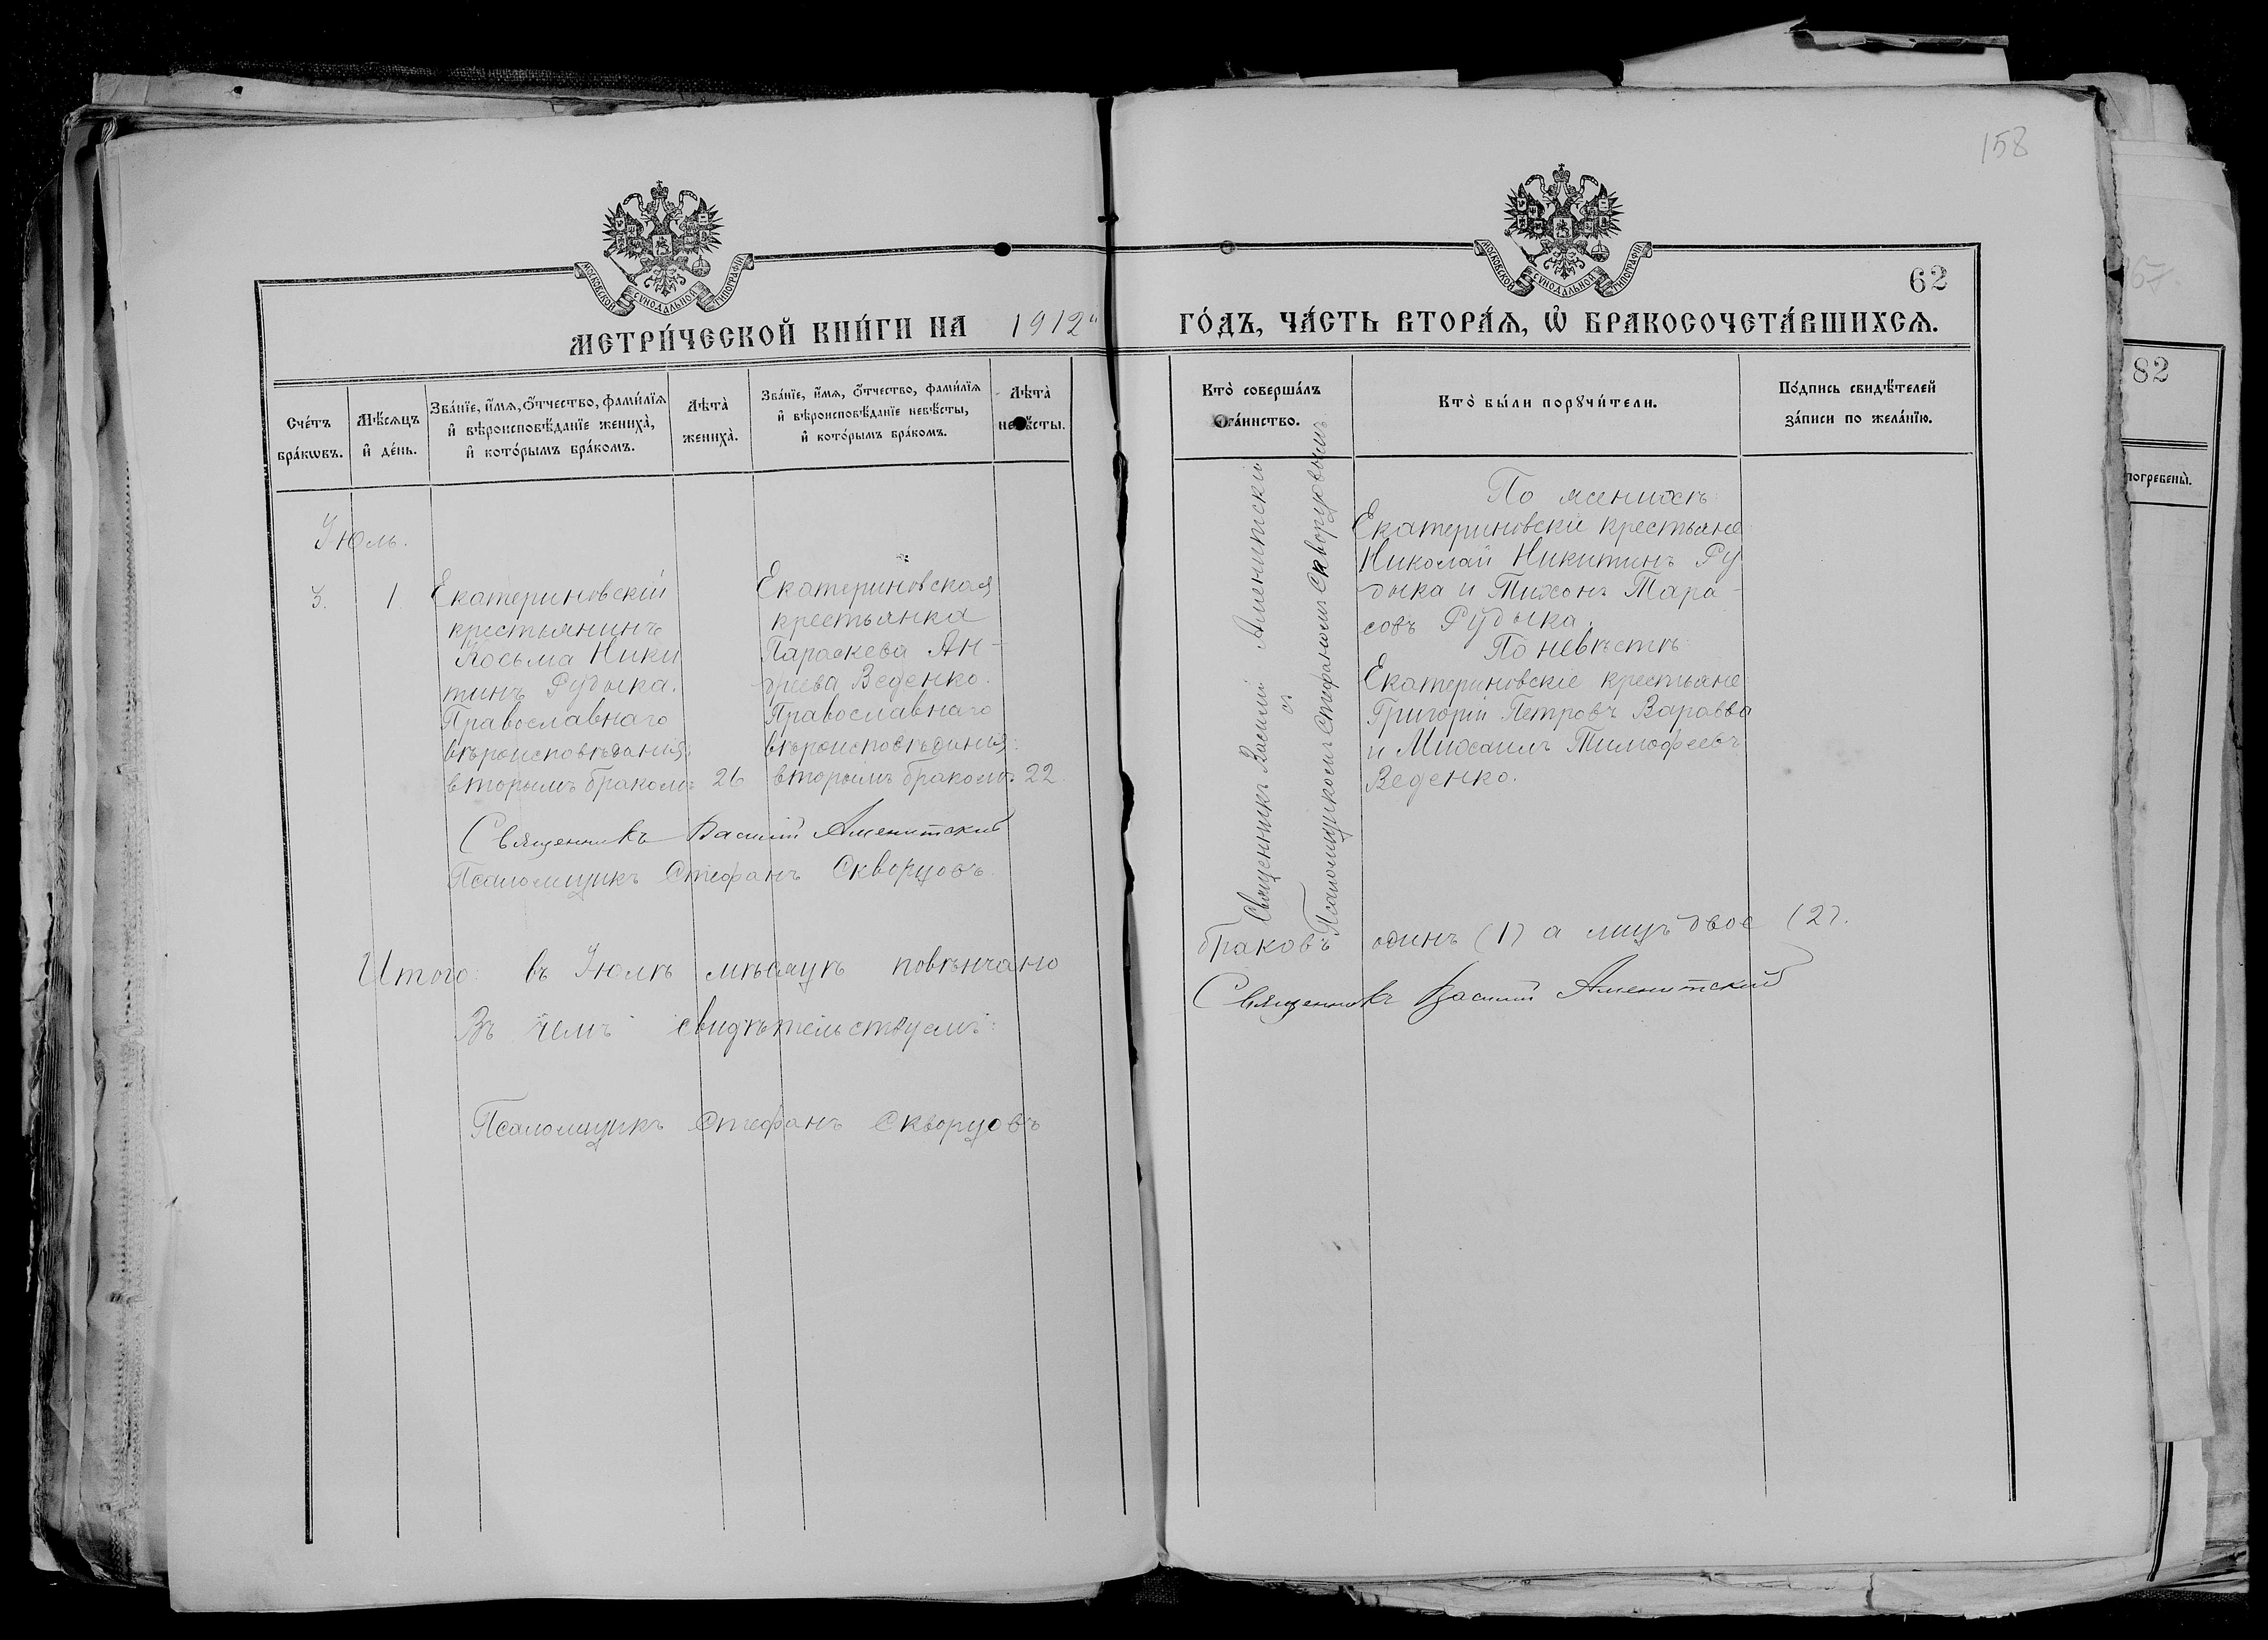 158
МОСКОВСКОЙ СѴНОДАЛЬНОЙ ТИПОГРАФІИ
МОСКОВСКОЙ СѴНОДАЛЬНОЙ ТИПОГРАФІИ
62
МЕТРИ́ЧЕСКОЙ КНИ́ГИ НА 1912 ГО́ДЪ, ЧА́СТЬ ВТОРА́Я, Ѽ БРАКОСОЧЕТА́ВШИХСѦ.
Сче́тъ бра́кѡвъ.
Мѣ́сѧцъ и҆ де́нь.
Зва́нїе, и҆́мѧ, ѻ҆́тчество, фами́лїѧ
и҆ вѣроисповѣ́данїе жениха̀,
и҆ кото́рымъ бра́комъ.
Лѣта̀ жениха̀.
Зва́нїе, и҆́мѧ, ѻ҆́тчество, фами́лїѧ
и҆ вѣроисповѣ́данїе невѣ́сты,
и҆ кото́рымъ бра́комъ.
Лѣта̀ невѣ́сты.
Кто̀ соверша́лъ
та́инство.
Кто̀ бы́ли порꙋчи́тели.
По́дпись свидѣ́телей
за́писи по жела́нїю.
Іюль.
3.
1.
Екатериновскій
крестьянинъ
Косьма Ники
тинъ Рудыка.
Православнаго
вѣроисповѣданія:
вторымъ бракомъ
26
Екатериновская
крестьянка
Параскева Ан-
дреева Веденко.
Православнаго
вѣроисповѣданія:
вторымъ бракомъ.
22.
Священникъ Василій Аменитскій
съ
Псаломщикомъ Стефаномъ Скворцовымъ
По женихѣ:
Екатериновскіе крестьяне
Николай Никитинъ Ру
дыка и Тихонъ Тара-
совъ Рудыка.
По невѣстѣ:
Екатериновскіе крестьяне
Григорій Петровъ Варавва
и Михаилъ Тимофеевъ
Веденко.
Священникъ Василій Аменитскій
Псаломщикъ Стефанъ Скворцовъ.
Итого: въ Іюлѣ мѣсяцѣ повѣнчано браковъ одинъ (1) а лицъ двое (2).
Въ чемъ свидѣтельствуемъ:
Священникъ Василій Аменитскій
Псаломщикъ Стефанъ Скворцовъ
82
погребены̀.